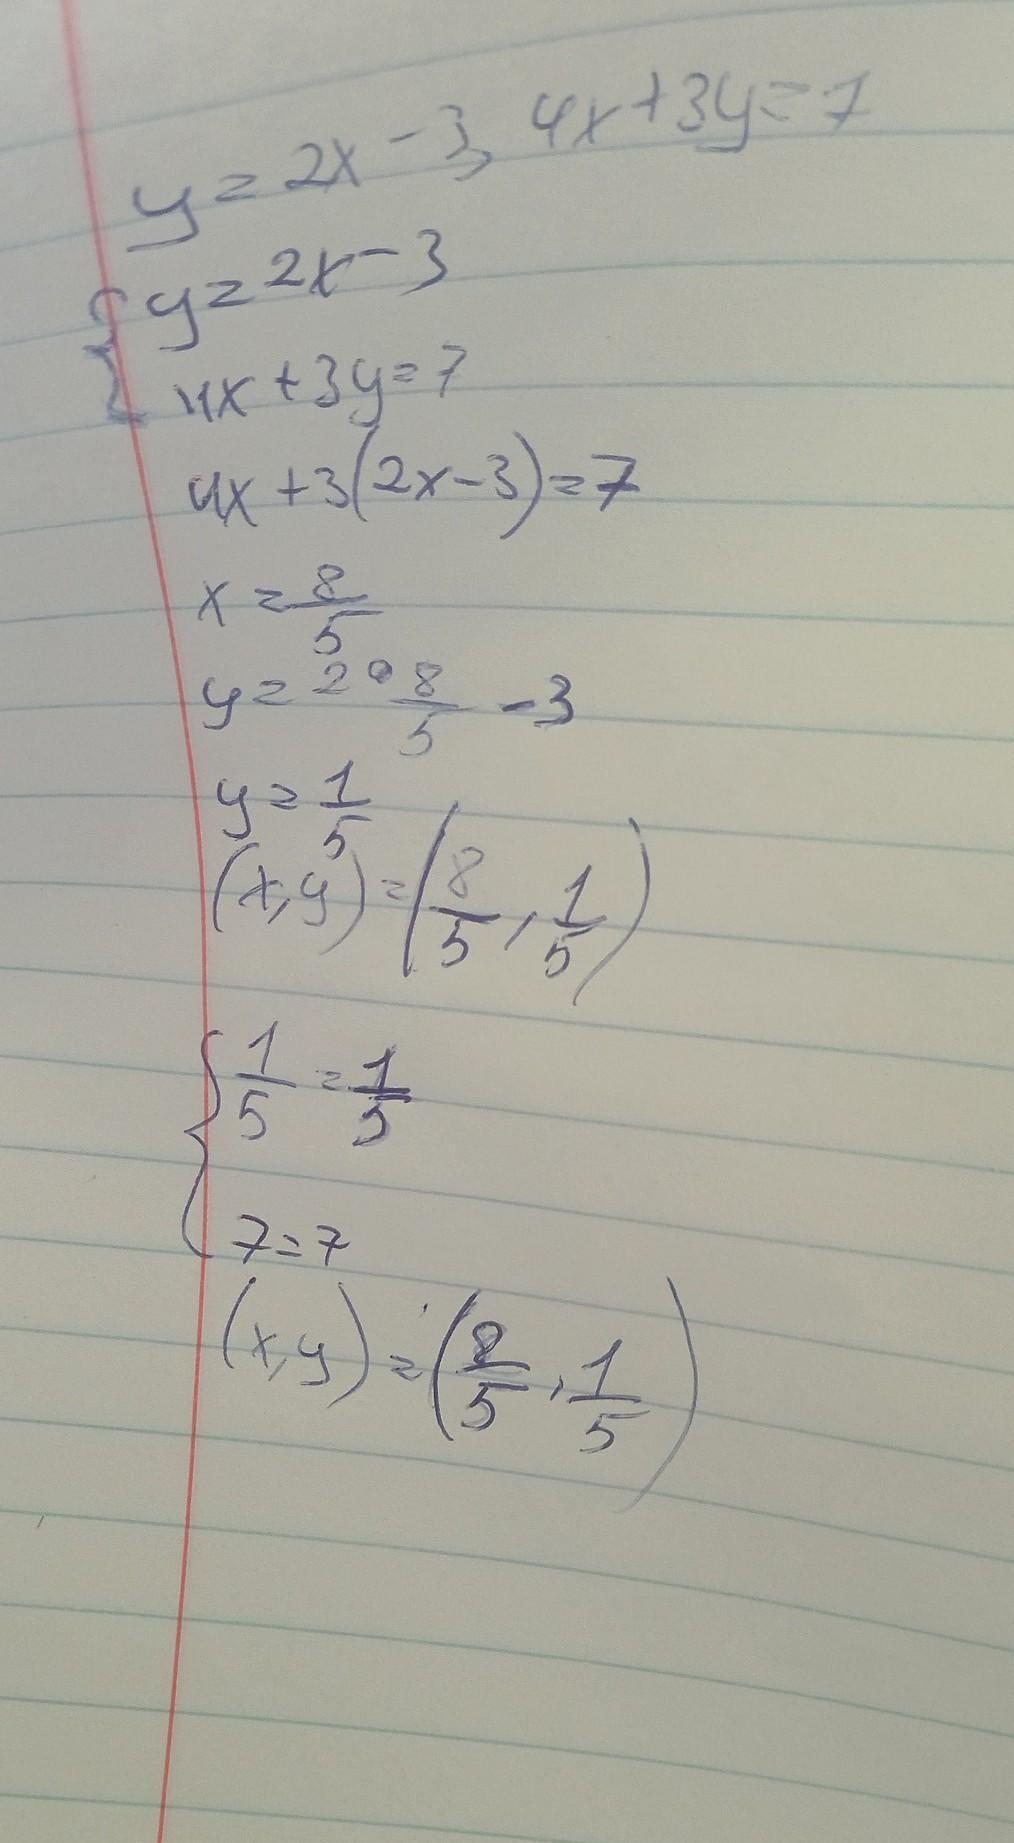 y = 2x - 3, 4x + 3y = 7
{ y = 2x - 3
4x + 3y = 7
4x + 3(2x - 3) = 7
x = 8/5
y = 2 • 8/5 - 3
y = 1/5
(x, y) = (8/5, 1/5)
{ 1/5 = 1/5
7 = 7
(x, y) = (8/5, 1/5)